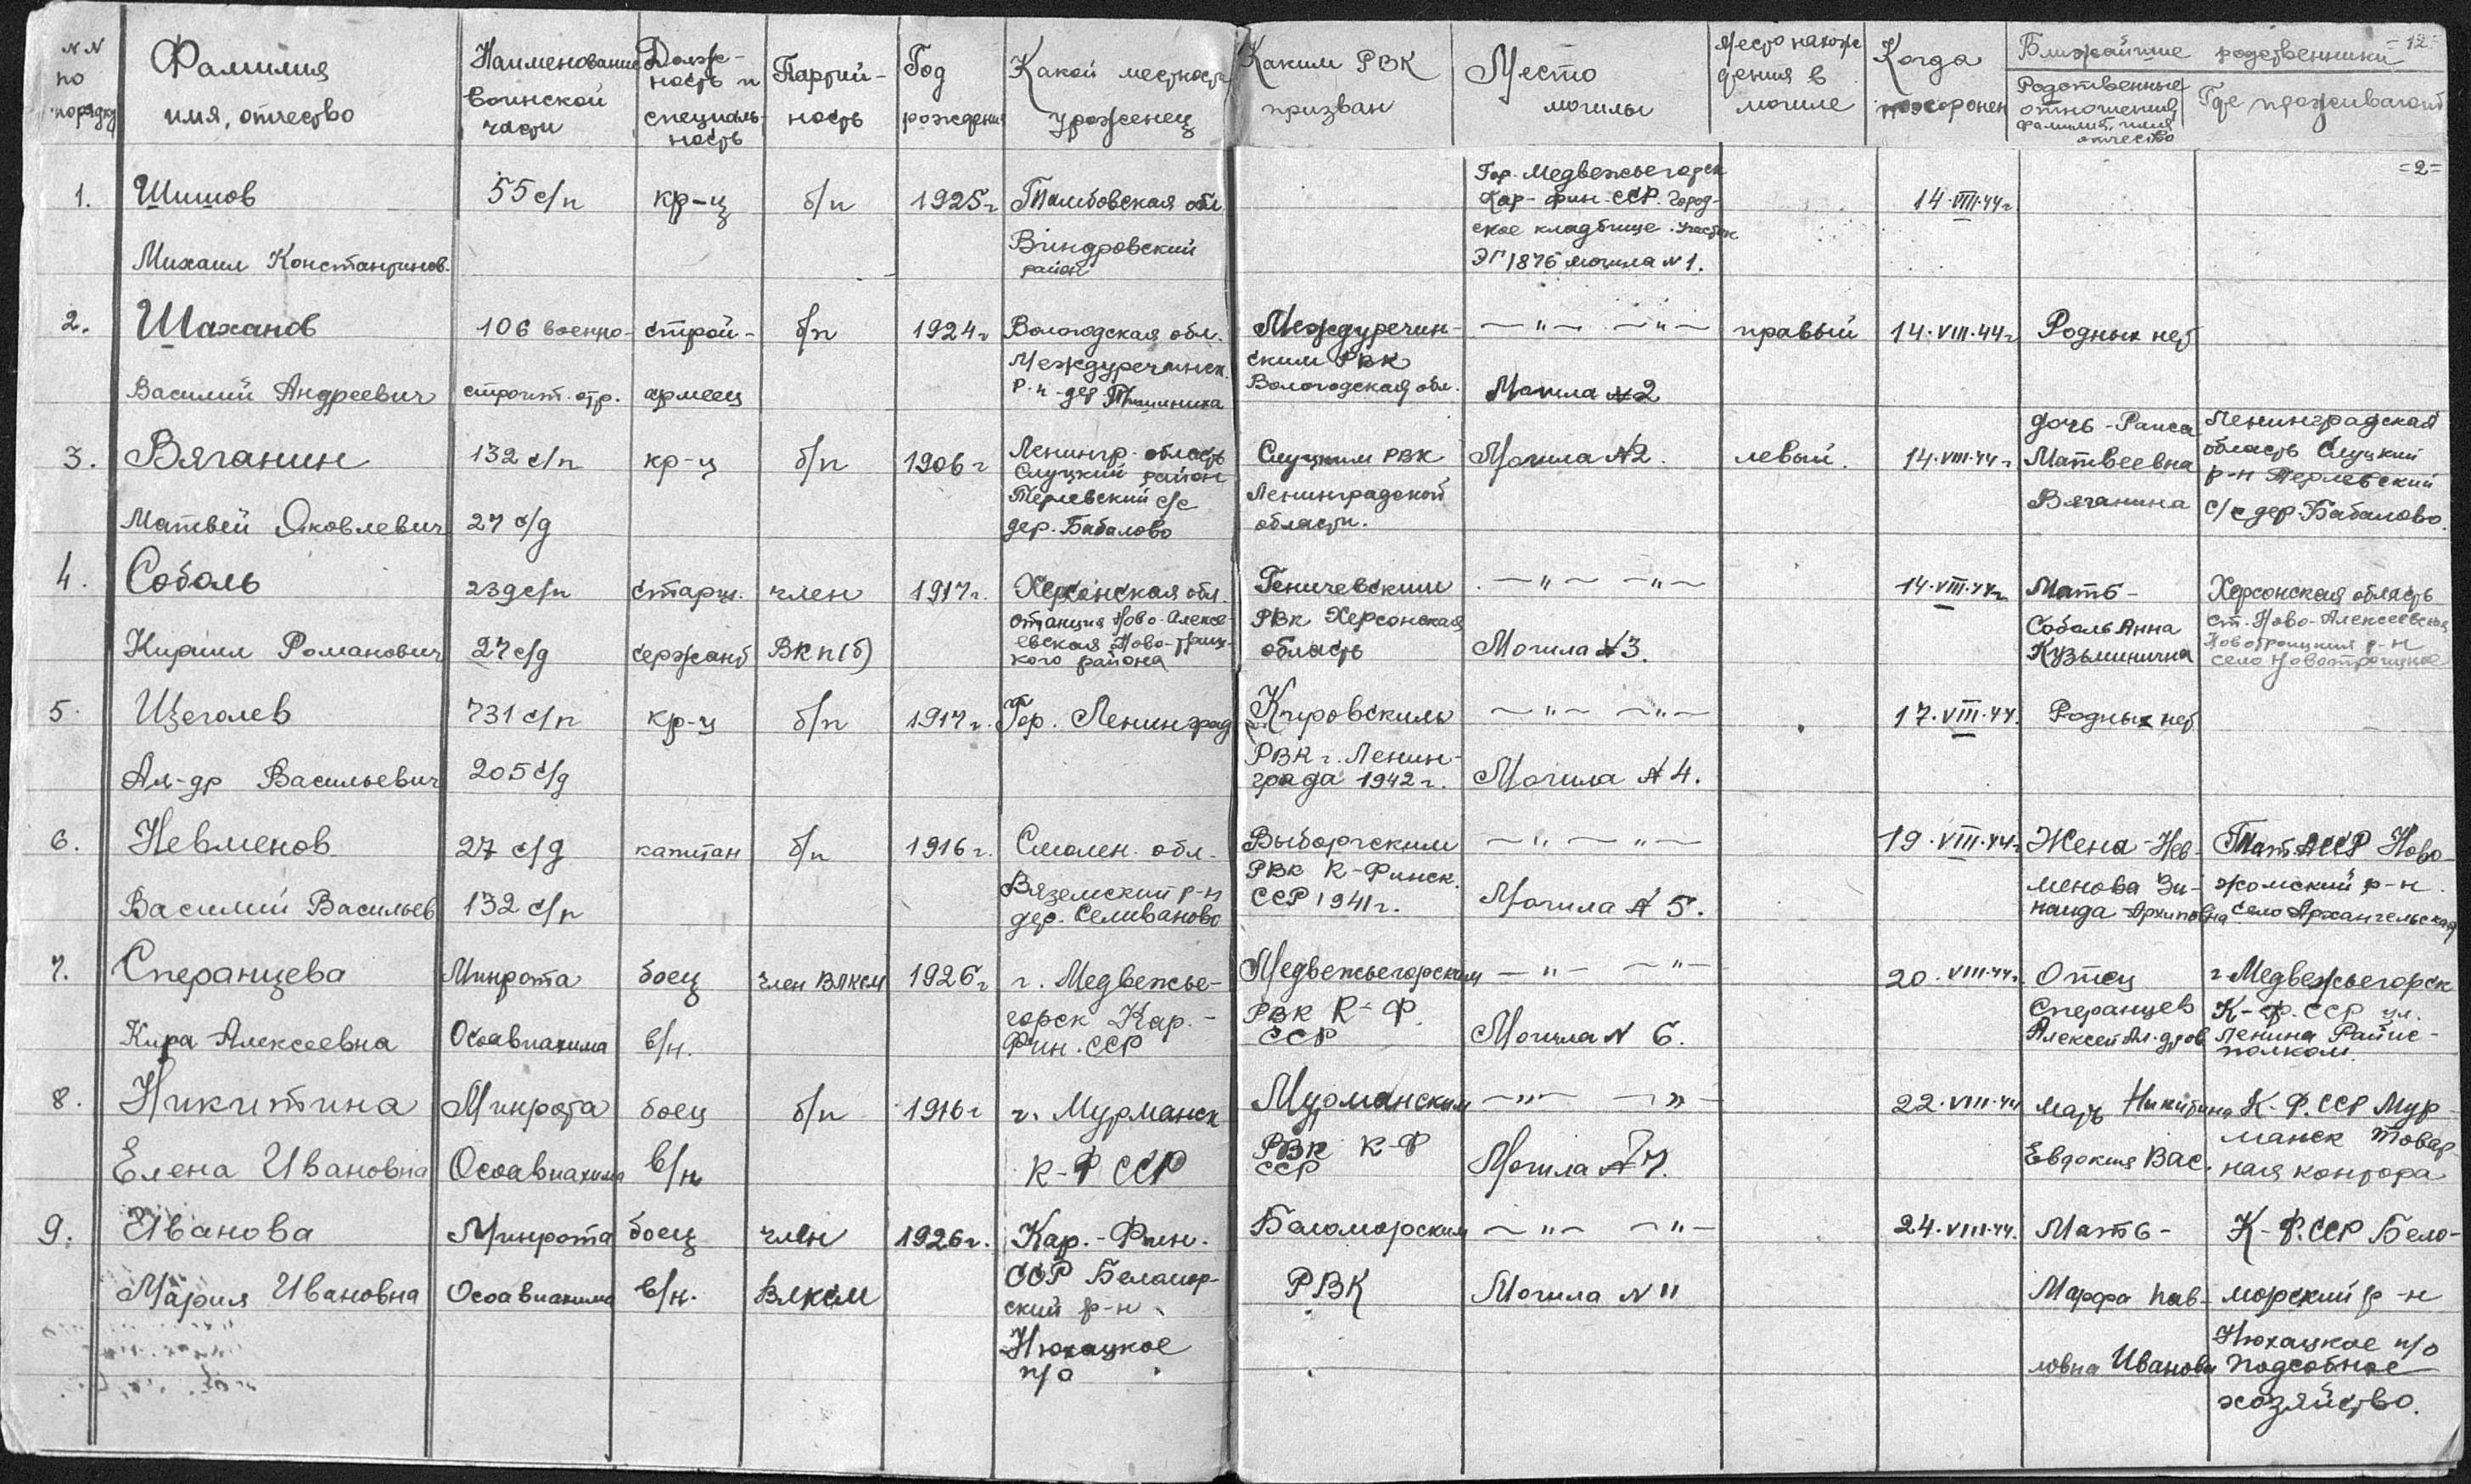 N N по порядку
Фамилия имя, отчество
Наименование воинской части
Долж-ность и специаль-ность
Партий-ность
Год рождения
Какой местности уроженец
Каким РВК призван
Место могилы
Место нахож дения в могиле
Когда похоронен
Ближайшие родственники
-12-
Родственные отношения, фамилия, имя отчество
Где проживают
=2=
1.
Шишов
Михаил Константинов.
55 с/п
кр-ц
б/п
1925 г
Тамбовская обл.
Виндровский
район
Гор. Медвежьегорск
Кар-фин. ССР. Город-
ское кладбище. Участок
ЭГ 1876 могила N 1.
14.VIII.44 г
2.
Шаханов
Василий Андреевич
106 военно-
строит. отр.
строй-
армеец
б/п
1924 г
Вологодская обл.
Междуреченск.
р-н дер. Тишиниха
Междуречин-
ским РВК
Вологодская обл.
— " — — " —
Могила N 2
правый
14.VIII.44 г
Родных нет
3.
Вяганин
Матвей Яковлевич
132 с/п
27 с/д
кр-ц
б/п
1906 г
Ленингр. область
Слуцкий район
Терлевский с/с
дер. Бабалово
Слуцким РВК
Ленинградской
области.
Могила N 2.
левый.
14.VIII.44 г
дочь - Раиса
Матвеевна
Вяганина
Ленинградская
область Слуцкий
р-н Терлевский
с/с дер. Бабалово.
4.
Соболь
Кирилл Романович
239 с/п
27 с/д
старш.
сержант
член
ВКП(б)
1917 г.
Херсонская обл.
станция Ново-Алексе-
евская Ново-Троиц-
кого района
Геничевским
РВК Херсонская
область
— " — — " —
Могила N 3.
14.VIII.44 г
Мать -
Соболь Анна
Кузьминична
Херсонская область
ст. Ново-Алексеевская
Новотроицкий р-н
село Новотроицкое
5.
Щеголев
Ал-др Васильевич
731 с/п
205 с/д
кр-ц
б/п
1917 г.
Гор. Ленинград
Кировским
РВК г. Ленин-
града 1942 г.
— " — — " —
Могила N 4.
17.VIII.44.
Родных нет
6.
Невменов
Василий Васильев
27 с/д
132 с/п
капитан
б/п
1916 г.
Смолен. обл.
Вяземский р-н
дер. Селиваново
Выборгским
РВК К-Финск.
ССР 1941 г.
— " — — " —
Могила N 5.
19.VIII.44 г
Жена - Нев-
менова Зи-
наида Архиповна
Тат. АССР Ново-
жомский р-н.
село Архангельская
7.
Сперанцева
Кира Алексеевна
Минрота
Осоавиахима
боец
в/н.
член ВЛКСМ
1926 г
г. Медвежье-
горск Кар.-
Фин. ССР
Медвежьегорским
РВК К-Ф.
ССР
— " — — " —
Могила N 6.
20.VIII.44 г.
Отец
Сперанцев
Алексей Ал-дров
г. Медвежьегорск
К-Ф. ССР ул.
Ленина Райис-
полком.
8.
Никитина
Елена Ивановна
Минрота
Осоавиахима
боец
в/н
б/п
1916 г
г. Мурманск
К-Ф ССР
Мурманским
РВК К-Ф
ССР
— " — — " —
Могила N 7.
22.VIII.44
мать Никитина
Евдокия Вас.
К-Ф. ССР Мур-
манск товар
ная контора
9.
Иванова
Мария Ивановна
Минрота
Осоавиахима
боец
в/н.
член
ВЛКСМ
1926 г.
Кар.-Фин.
ССР Беломор-
ский р-н
Нюхацкое
п/о
Беломорским
РВК
— " — — " —
Могила N 11
24.VIII.44.
Мать -
Марфа Пав-
ловна Иванова
К-Ф. ССР Бело-
морский р-н
Нюхацкое п/о
подсобное
хозяйство.